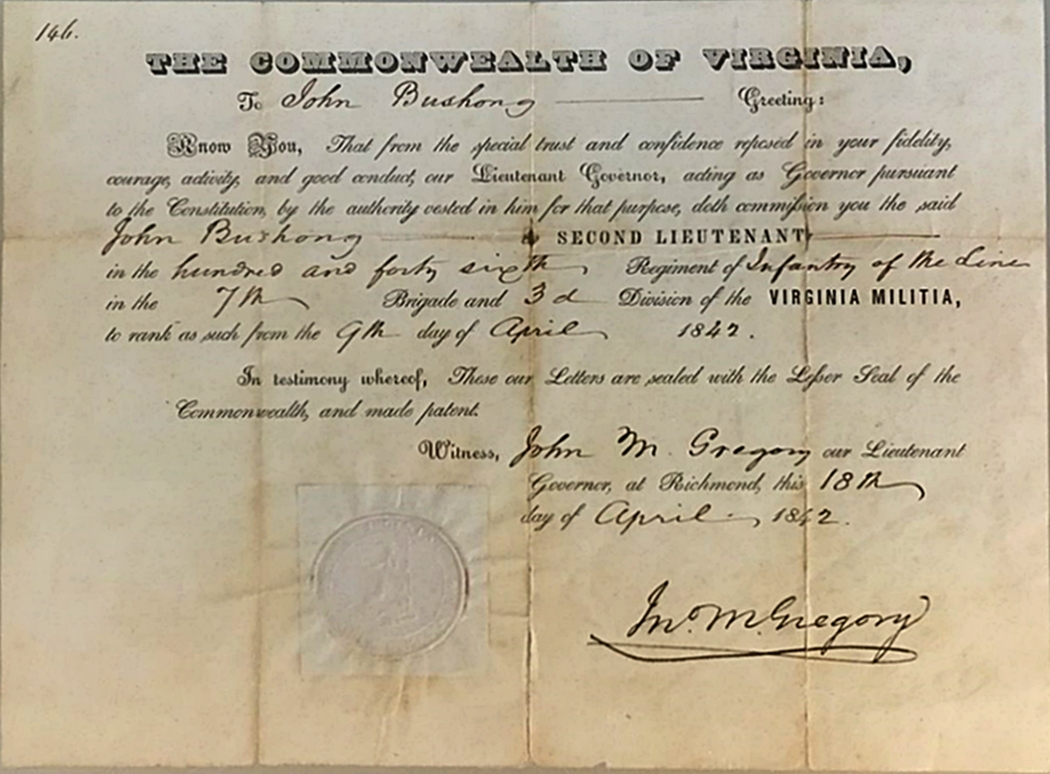 146.
THE COMMONWEALTH OF VIRGINIA,
To John Bushong Greeting:
Know You, That from the special trust and confidence reposed in your fidelity,
courage, activity, and good conduct, our Lieutenant Governor, acting as Governor pursuant
to the Constitution, by the authority vested in him for that purpose, doth commission you the said
John Bushong SECOND LIEUTENANT
in the hundred and forty sixth Regiment of Infantry of the Line
in the 7th Brigade and 3d Division of the VIRGINIA MILITIA,
to rank as such from the 9th day of April 1842.
In testimony whereof, These our Letters are sealed with the Lesser Seal of the
Commonwealth, and made patent.
Witness, John M. Gregory our Lieutenant
Governor, at Richmond, this 18th
day of April, 1842.
Jno. M. Gregory